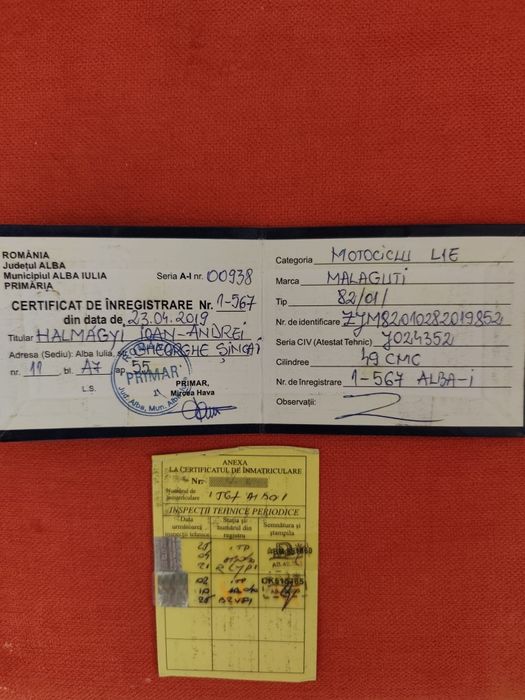 ROMÂNIA
Județul ALBA
Municipiul ALBA IULIA
PRIMĂRIA
Seria A-I nr. 00938
CERTIFICAT DE ÎNREGISTRARE Nr. 1-567
din data de 23.04.2019
Titular HALMAGYI IOAN-ANDREI
Adresa (Sediu): Alba Iulia, str. GHEORGHE ȘINCAI
nr. 11 bl. A7 ap. 55
L.S.
PRIMAR
PRIMAR,
Mircea Hava
Categoria MOTOCICLU L1E
Marca MALAGUTI
Tip 82/01/
Nr. de identificare ZJM82010282019852
Seria CIV (Atestat Tehnic) J024352
Cilindree 49 CMC
Nr. de înregistrare 1-567 ALBA-i
Observații:
ANEXA
LA CERTIFICATUL DE ÎNMATRICULARE
Nr:
Numărul de
înmatriculare
INSPECȚII TEHNICE PERIODICE
Data
următoarei
inspecții tehnice
Stația și
numărul din
registru
Semnătura și
ștampila
ITP
21
ITP